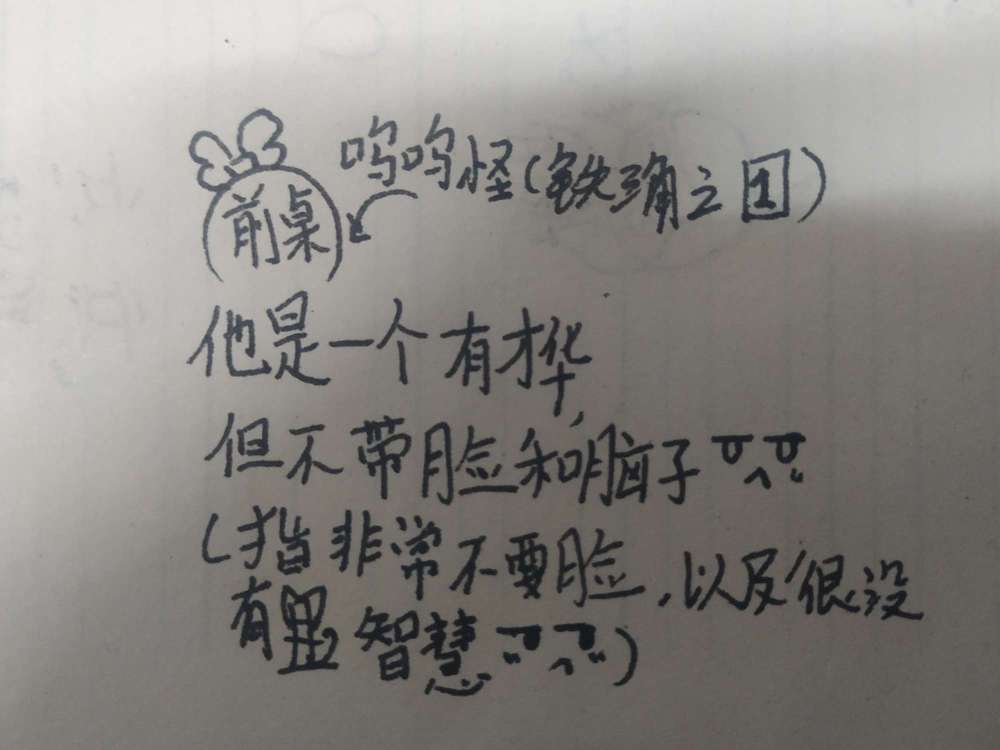 呜呜怪(铁三角之1)
前桌
他是一个有才华,
但不带脸和脑子
(指非常不要脸,以及很没
有智慧)